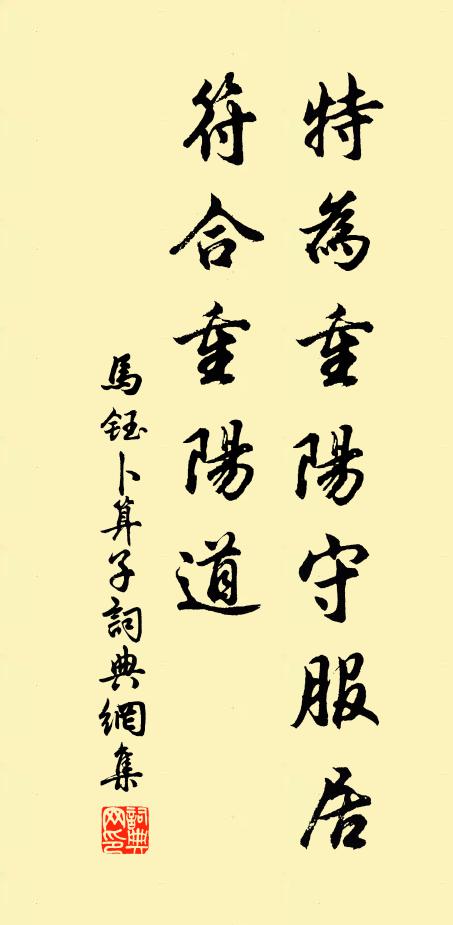 特為重陽守服居
符合重陽道
馬鈺卜算子詞典網集
詞典网印